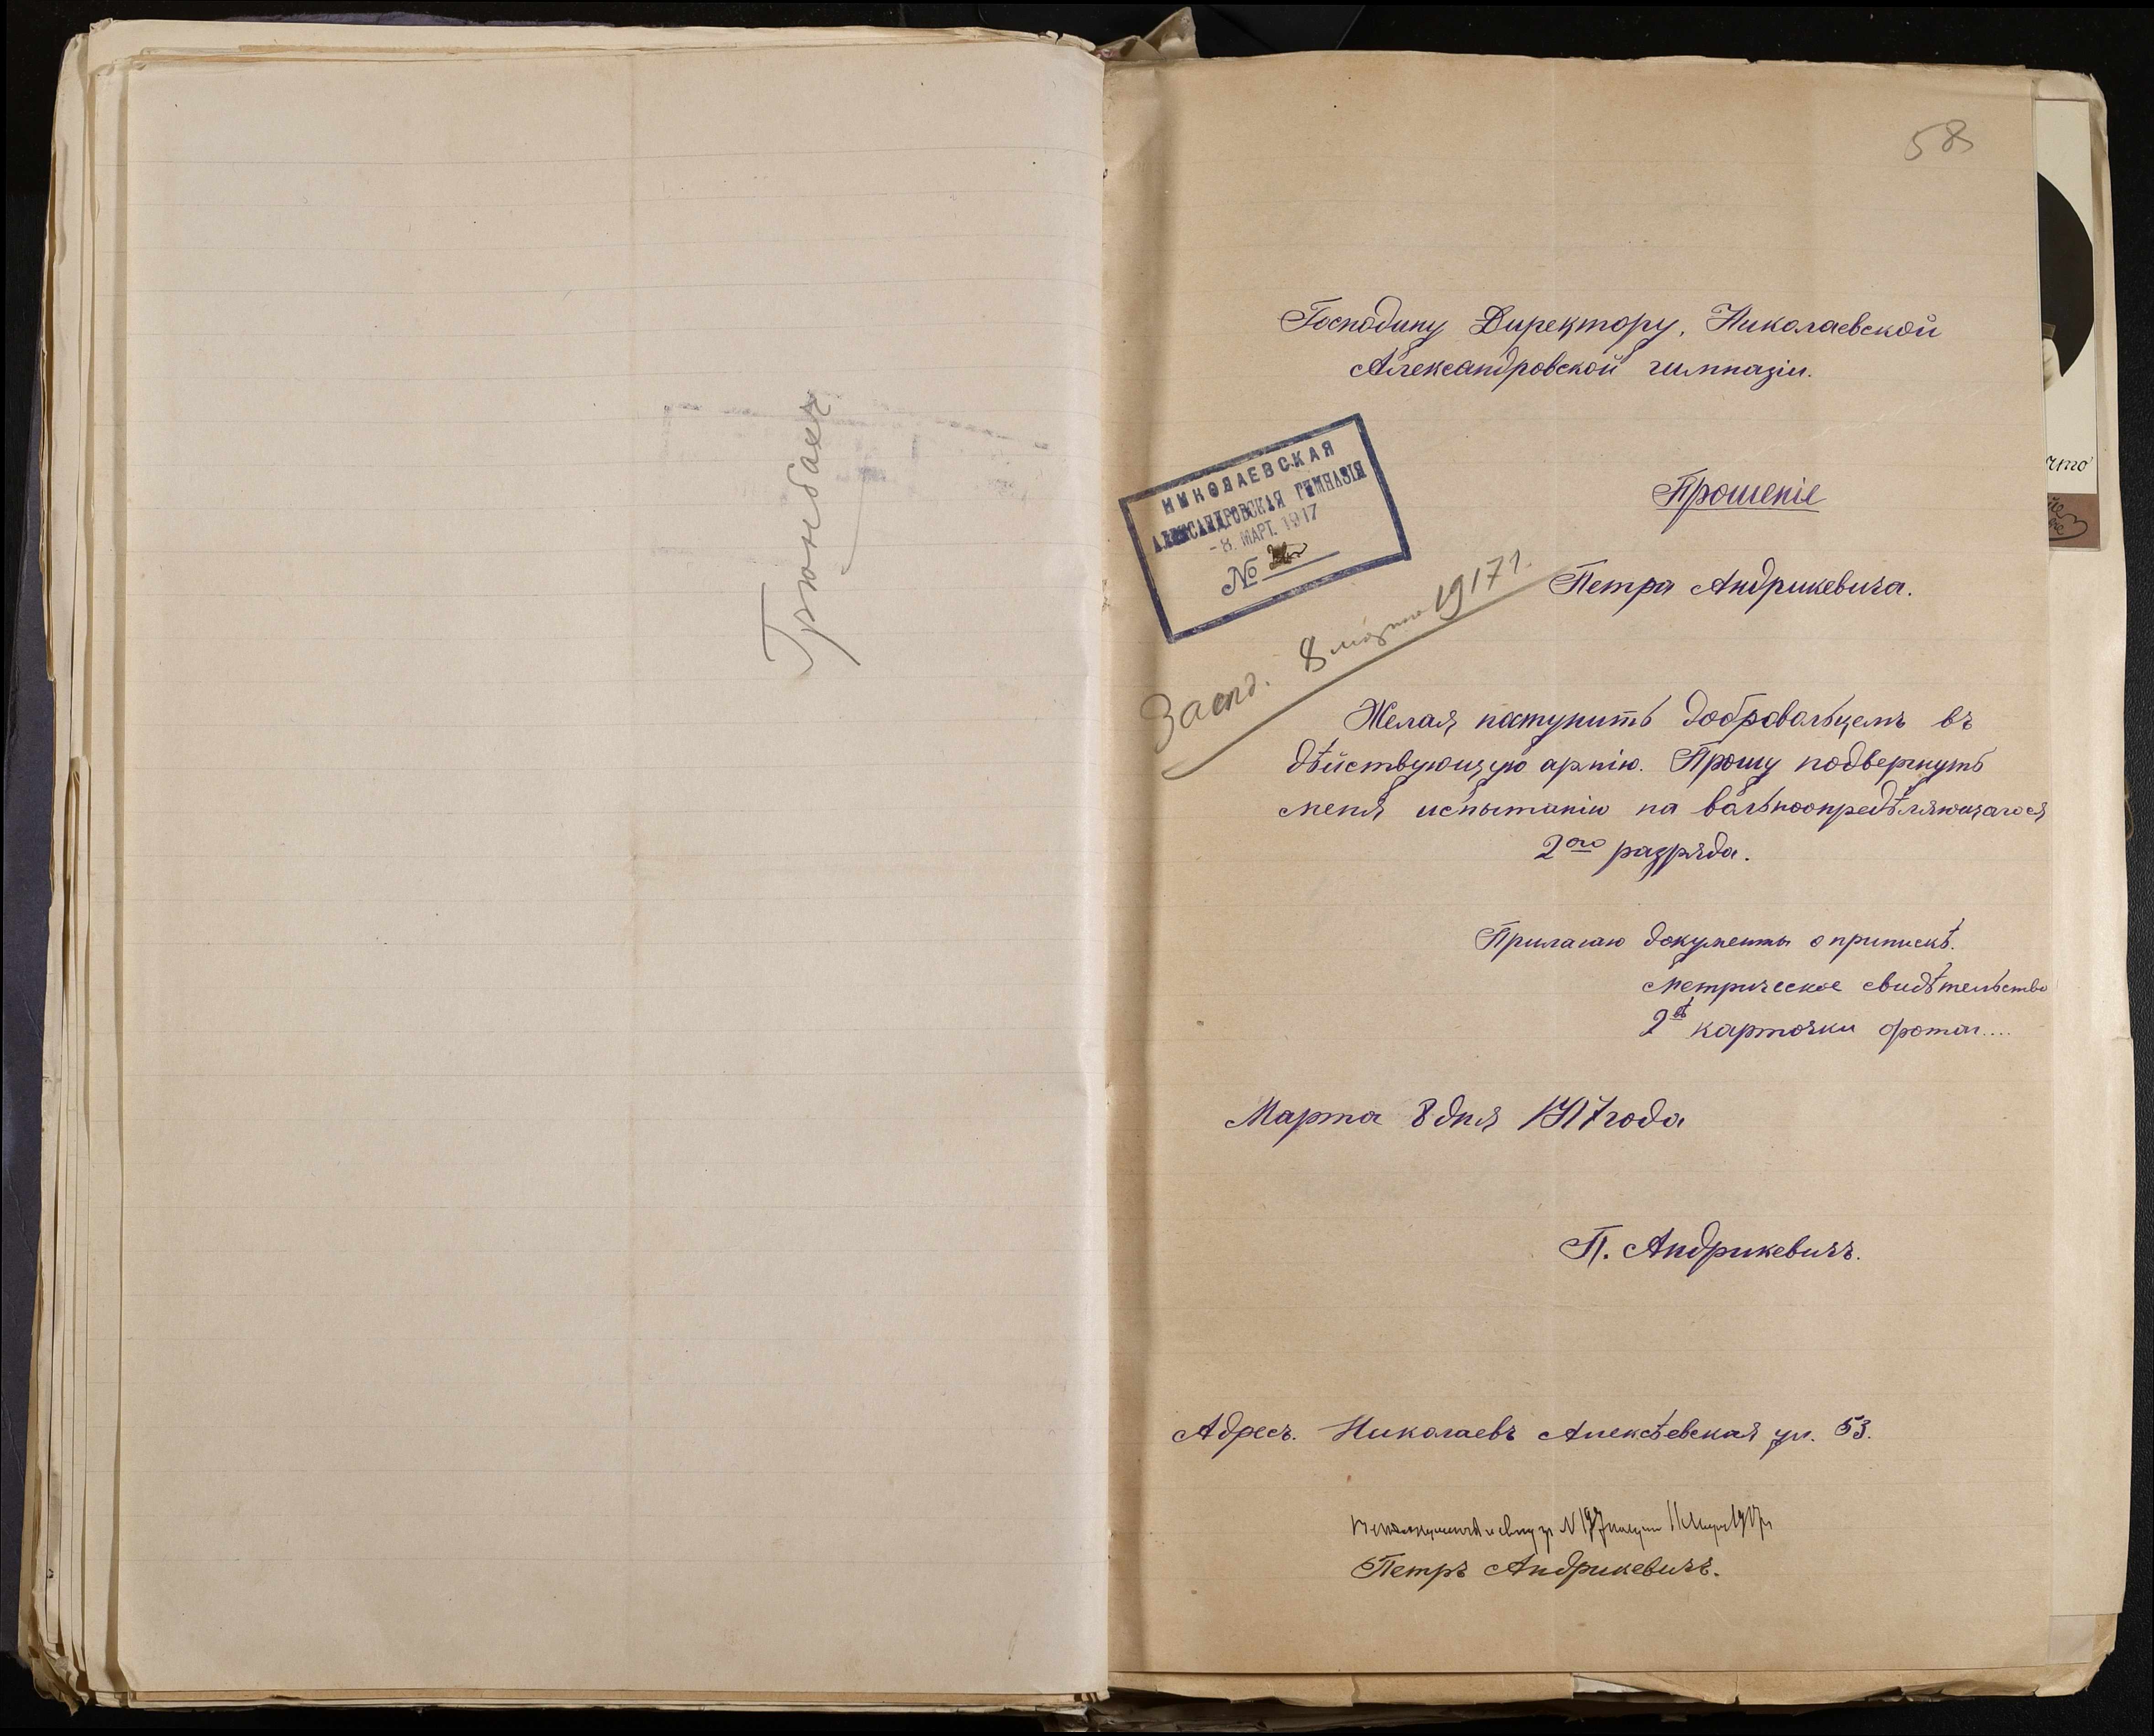 Грюнбахъ
58
Господину Директору, Николаевской
Александровской гимназіи.
НИКОЛАЕВСКАЯ
АЛЕКСАНДРОВСКАЯ ГИМНАЗІЯ
-8. МАРТ. 1917
№
Прошеніе
Петра Андрикевича.
8 марта 1917 г.
Желая поступить добровольцемъ въ
дѣйствующую армію. Прошу подвергнуть
меня испытанію на вольноопредѣляющагося
2ого разряда.
Прилагаю документы о припискѣ.
Метрическое свидѣтельство
2вѣ карточки фотог....
Марта 8 дня 1917 года
П. Андрикевичъ.
Адресъ. Николаевъ Алексѣевская ул. 53.
Петръ Андрикевичъ.